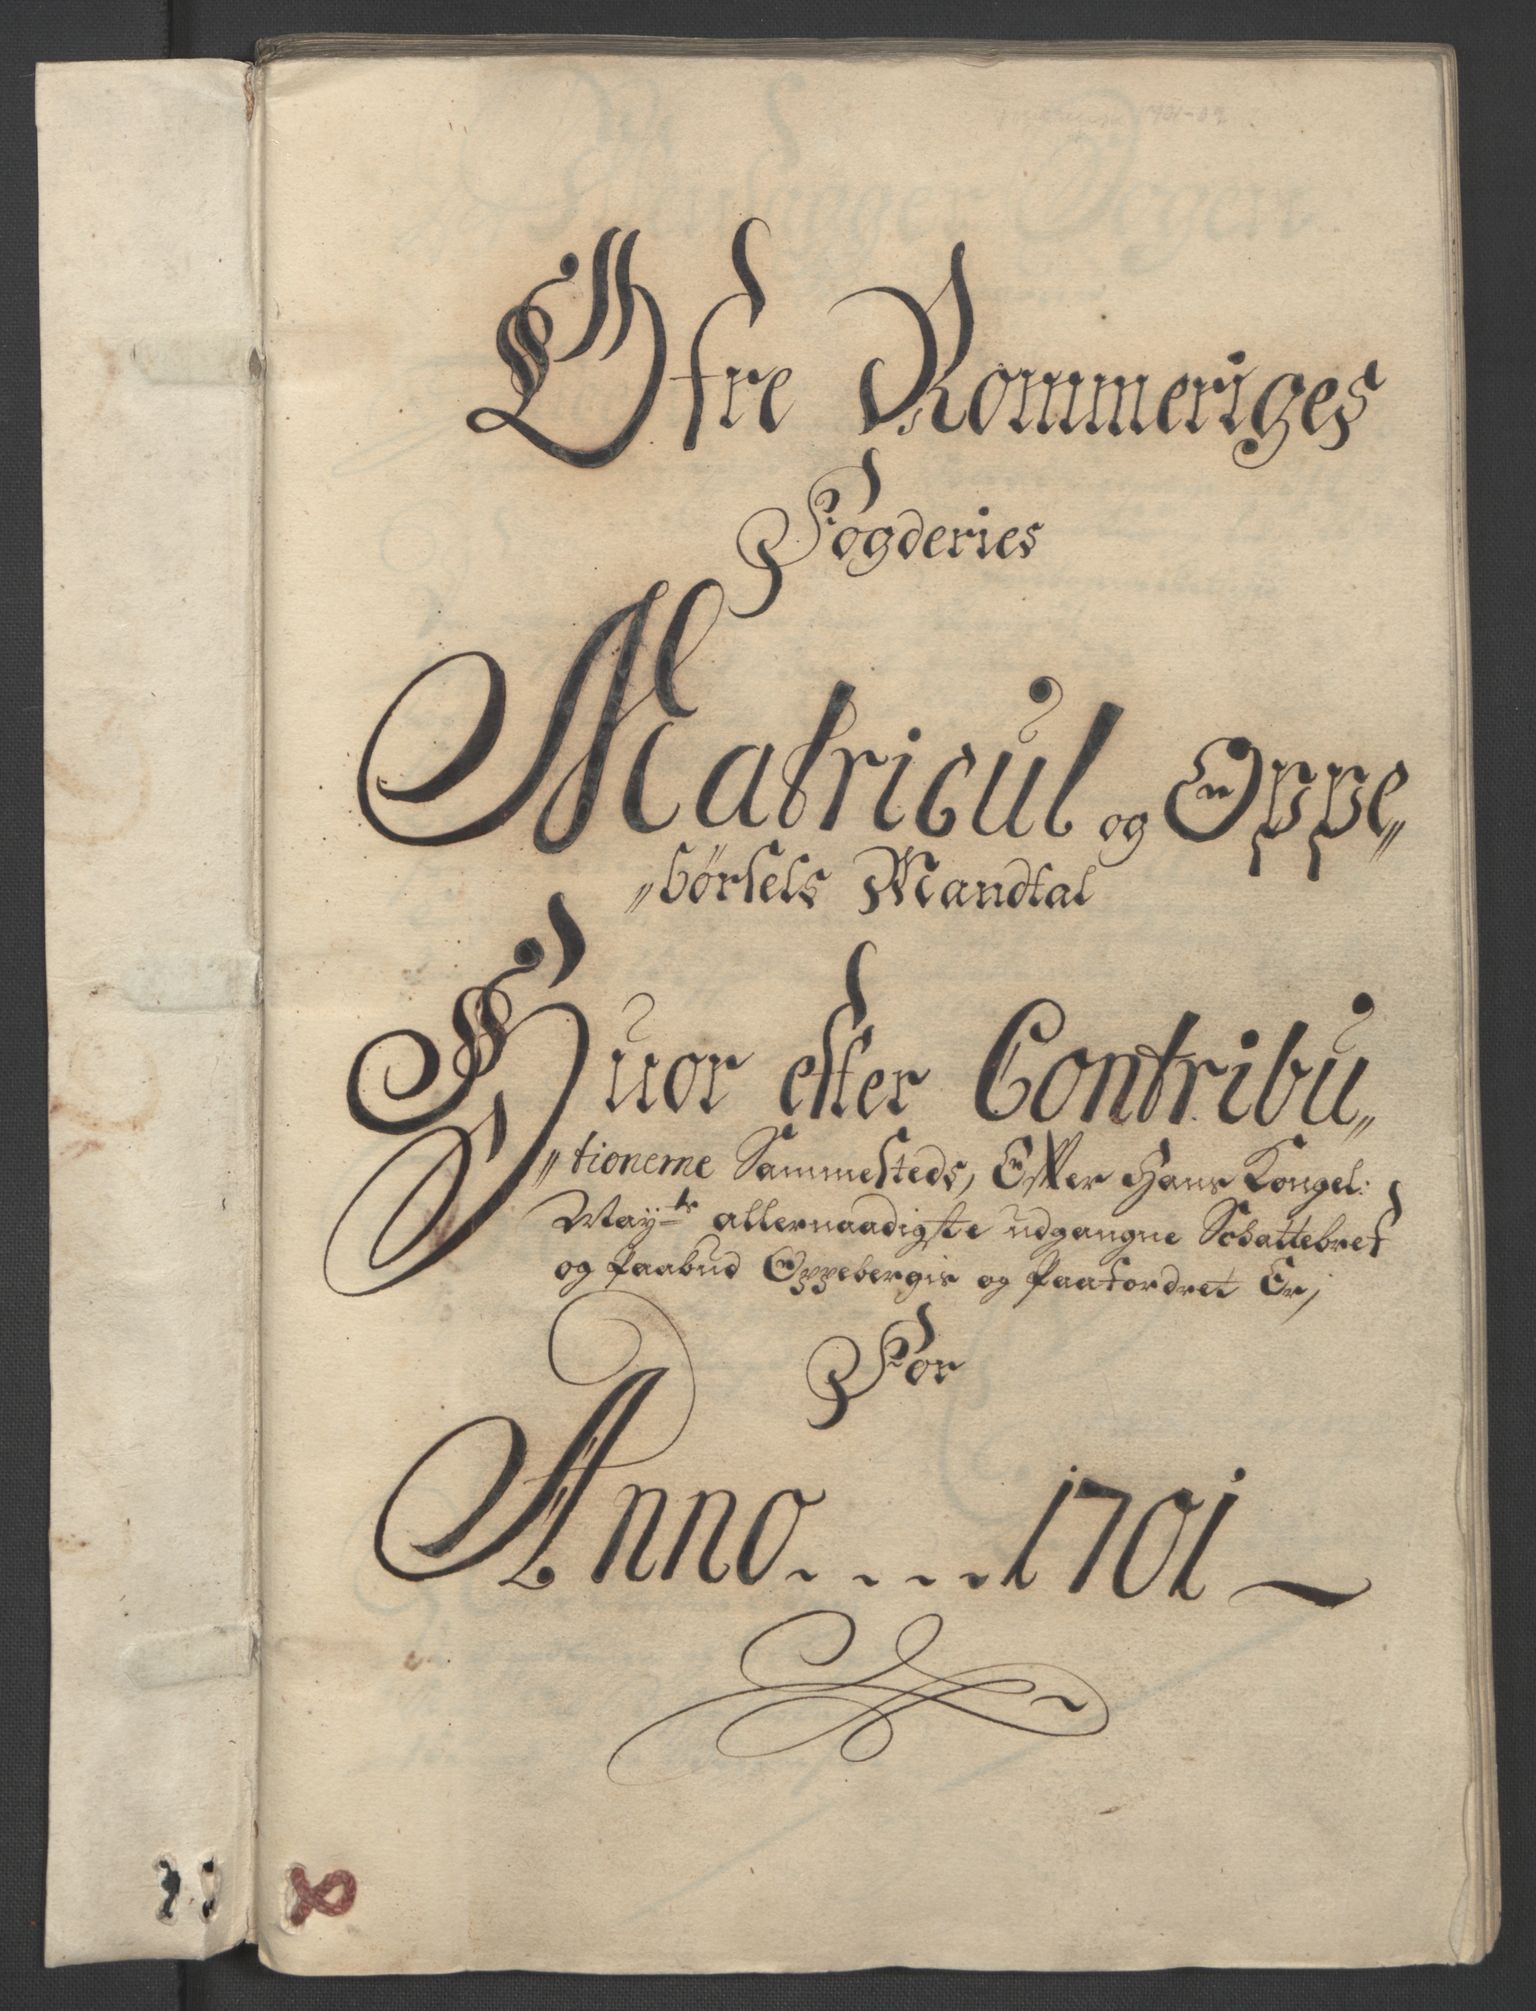 Öfre Rommeriges
Fogderies
Matricul og Oppe„
„börsels Mandtal
Huor effter Contribu„
„tionerne Sammesteds, Effter Hans Kongel:
May:ts allernaadigste udgangne Schattebref
og Paabud Oppebergis og Paafordret Er,
For
Anno....1701